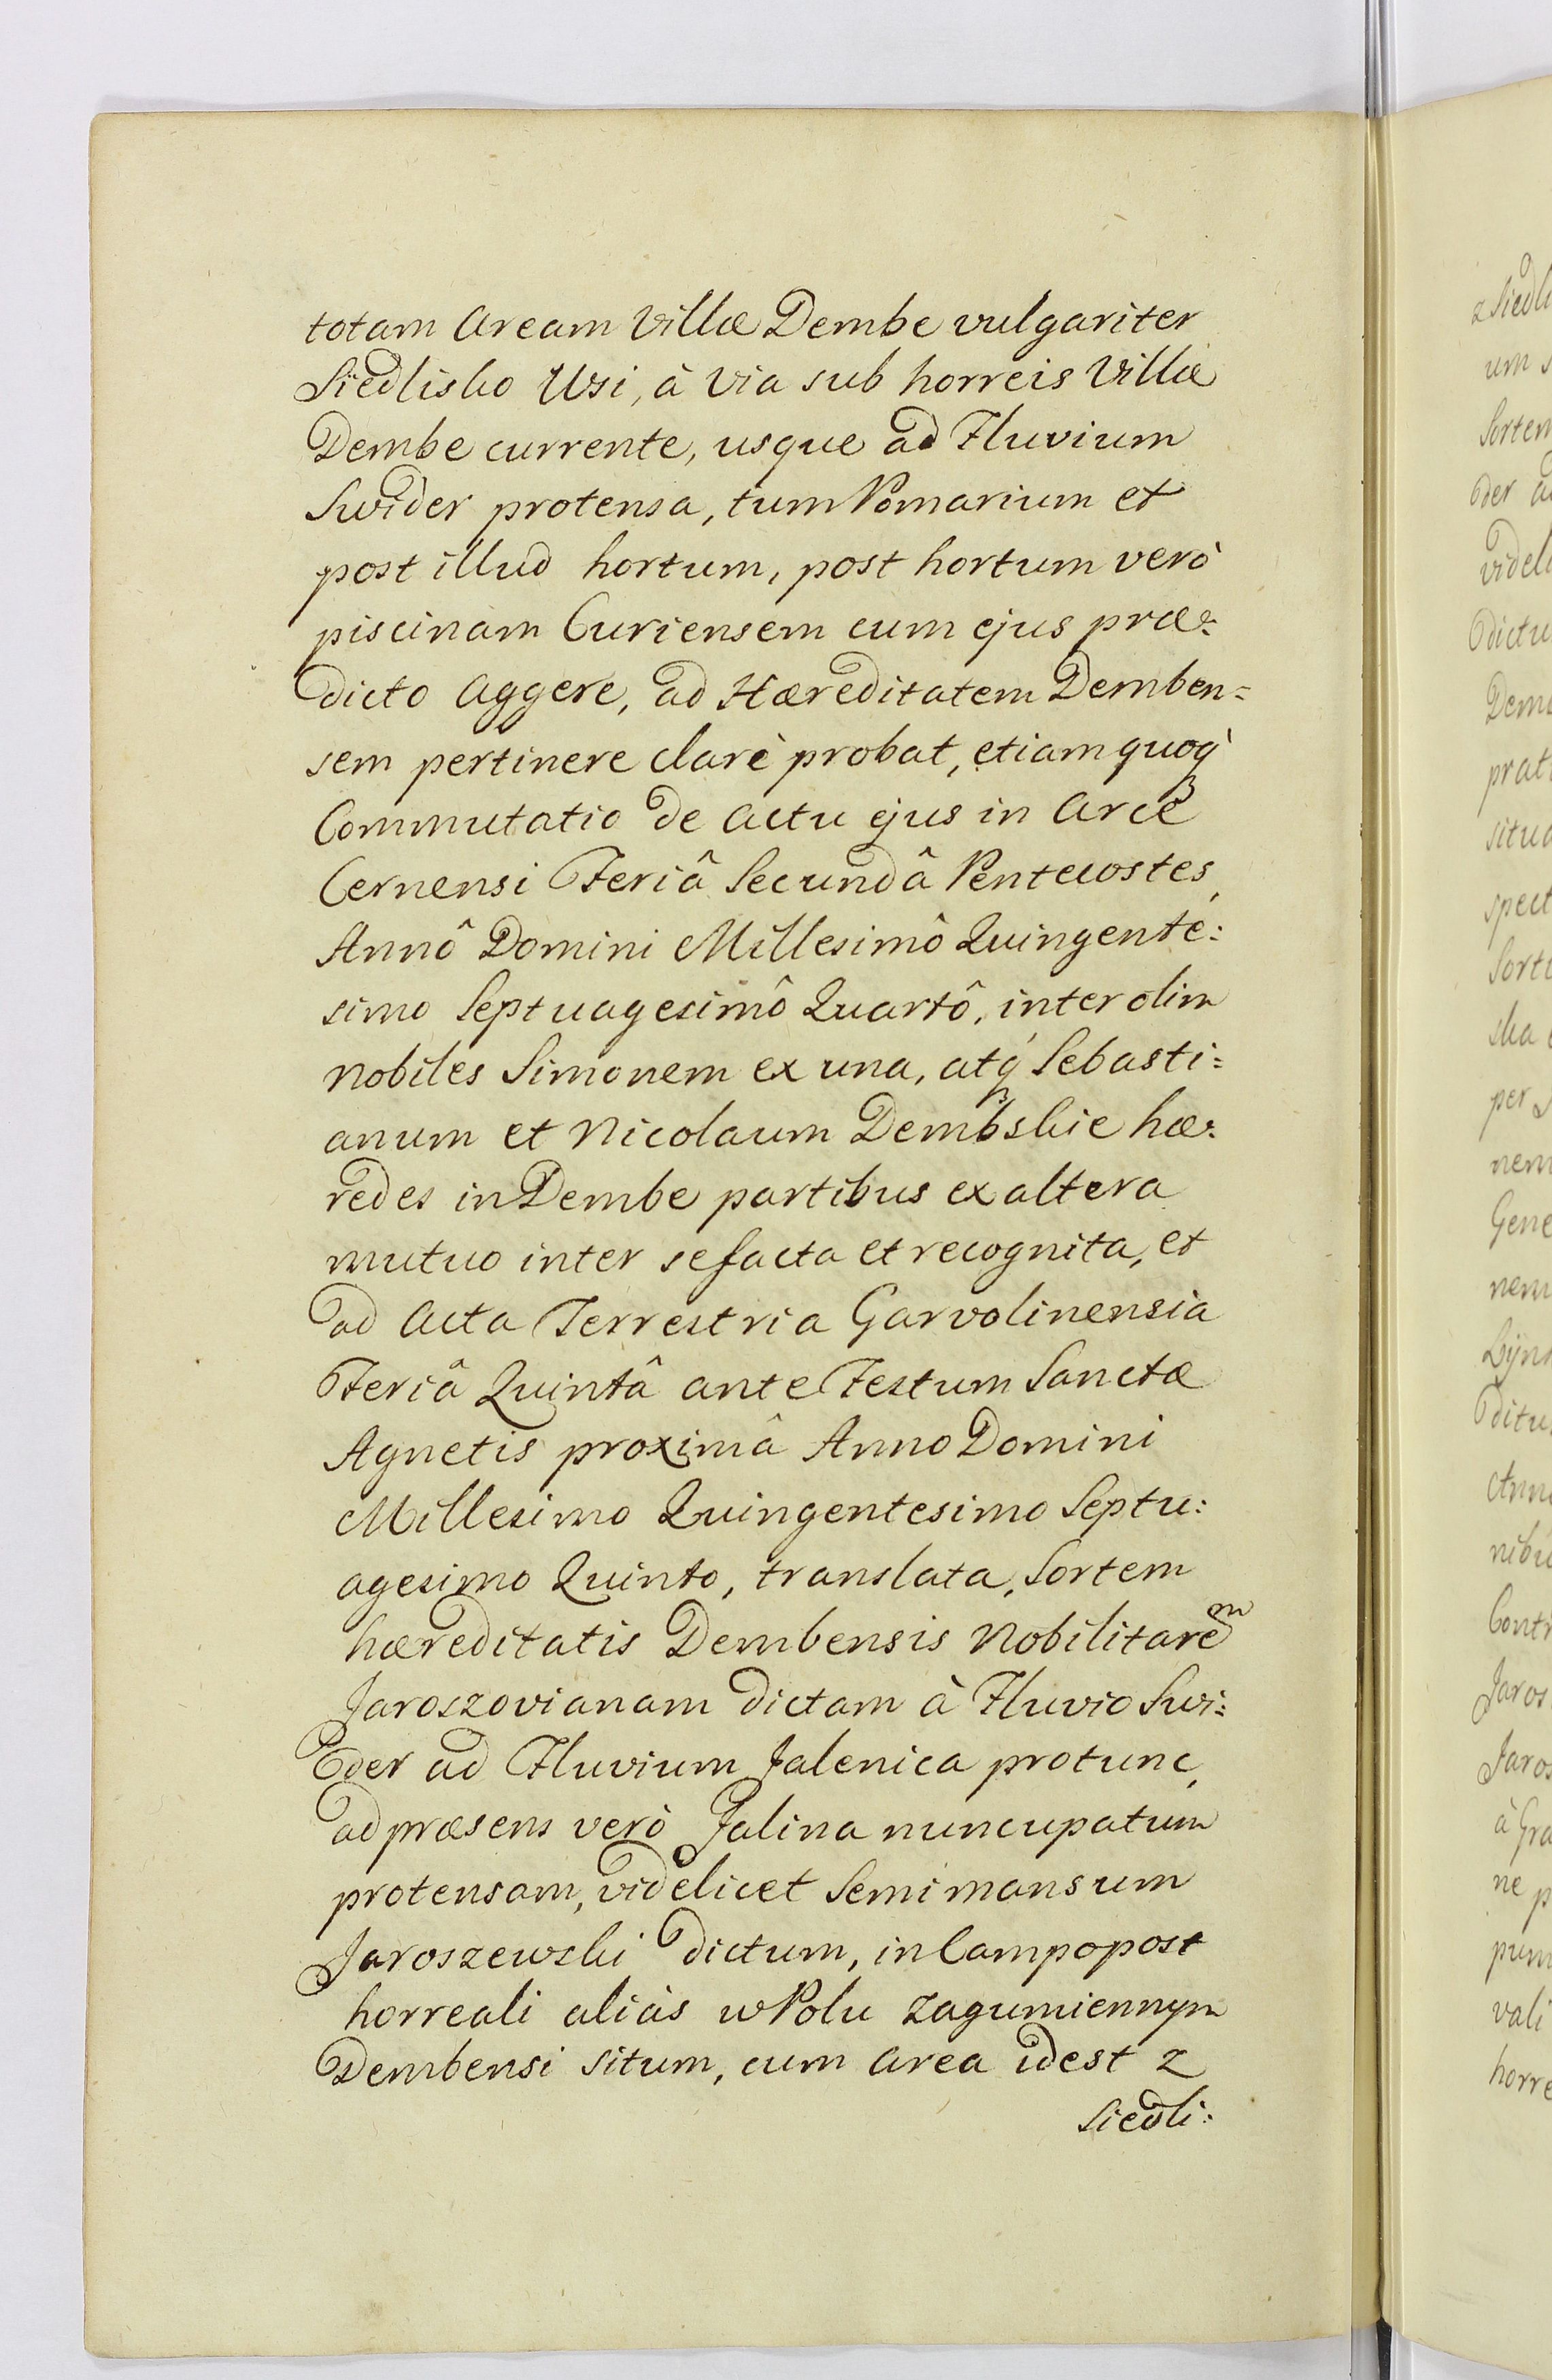 totam Aream Villæ Dembe vulgariter
Siedlisko Wsi, à via sub horreis Villæ
Dembe currente, usque ad Fluvium
Swider protensa, tum Pomarium et
post illud hortum, post hortum verò
piscinam Curiensem cum ejus præ=
dicto Aggere, ad Hæreditatem Demben=
sem pertinere clarè probat, etiam quoq́
Commutatio de Actu ejus in Arce
Cernensi Feriâ Secundâ Pentecostes,
Annô Domini Millesimô Quingente:
simo Septuagesimô Quartô, inter olim
Nobiles Simonem ex una, atq́ Sebasti=
anum et Nicolaum Dembskie hæ=
redes in Dembe partibus ex altera
mutuo inter se facta et recognita, et
ad Acta Terrestria Garvolinensia
Feriâ Quintâ ante Festum Sanctæ
Agnetis proximâ Anno Domini
Millesimo Quingentesimo Septu:
agesimo Quinto, translata, Sortem
hæreditatis Dembensis Nobilitarem
Jaroszovianam dictam à Fluvio Swi=
der ad Fluvium Jalenica protunc,
ad præsens verò Jalina nuncupatum
protensam, videlicet Semimansum
Jaroszewski dictum, in Campo post
horreali aliàs w Polu Zagumiennym
Dembensi situm, cum Area idest z
Siedli:
z Siedli
um s
Sortem
der a
videl
dictu
prat
situa
spect
Sort
ska
per
nem
Gene
nem
ditu
Anno
nibu
Contr
Jaros
Jaros
à Gra
ne p
vali
horre